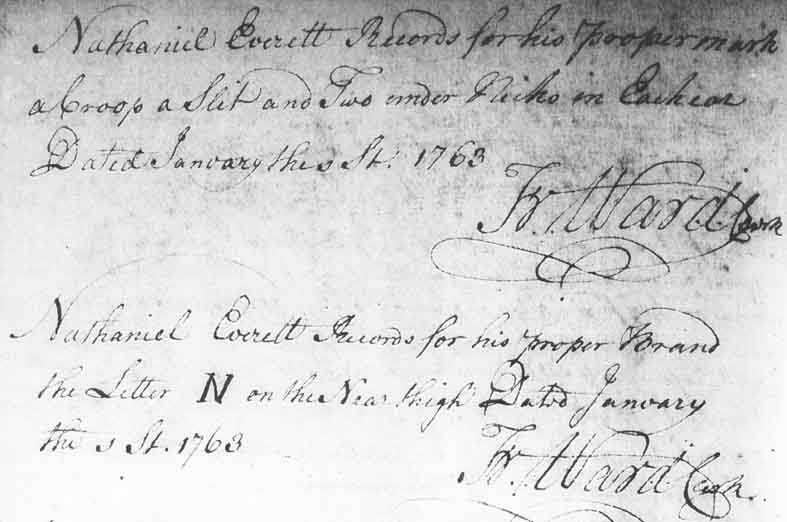 Nathaniel Everett Records for his proper mark
a Croop a Slit and Two under Nicks in Each ear
Dated January the 1 St. 1763
Fr. Ward Clerk
Nathaniel Everett Records for his proper Brand
the Letter N on the Near thigh Dated January
the 1 St. 1763
Fr. Ward Clerk